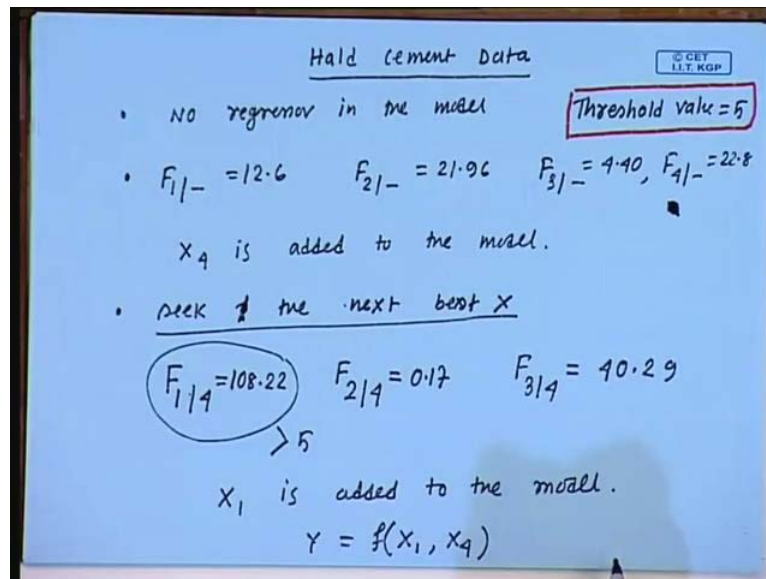 Hald cement Data
© CET
I.I.T. KGP
• No in the model
Threshold value = 5
• F₁|₋ = 12.6 F₂|₋ = 21.96 F₃|₋ = 4.40, F₄|₋ = 22.8
X₄ is added to the model.
• seek the next best X
F₁|₄ = 108.22 F₂|₄ = 0.17 F₃|₄ = 40.29
> 5
X₁ is added to the modell.
Y = f(X₁, X₄)